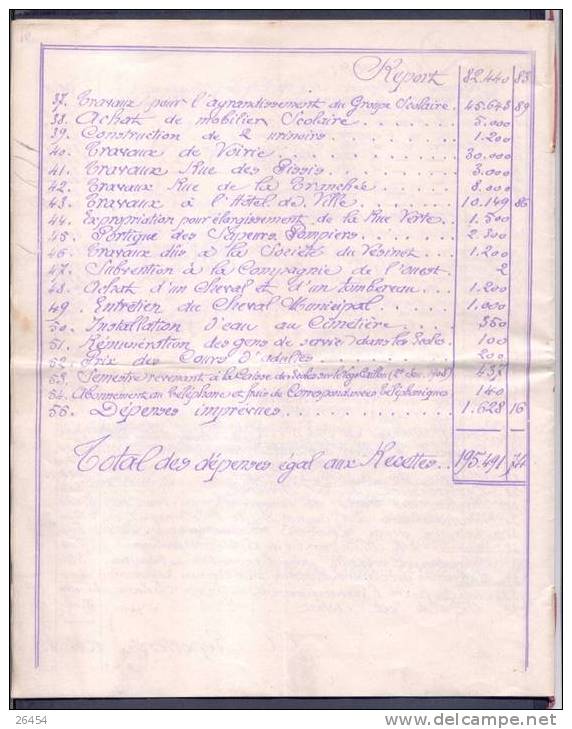 Report 82.440 83
37. Travaux pour l'agrandissement du Groupe Scolaire. 45.643 89
38. Achat de mobilier Scolaire 5.000
39. Construction de 2 urinoirs 1.200
40. Travaux de Voirie 30.000
41. Travaux Rue des 3.000
42. Travaux Rue de la Tranchée 8.000
43. Travaux à l'Hôtel de Ville 10.149 86
44. Expropriation pour élargissement de la Rue Verte. 1.500
45. Portique des Sapeurs Pompiers 2.300
46. Travaux dûs à la Société du Vésinet 1.200
47. Subvention à la Compagnie de l'ouest 2
48. Achat d'un Cheval et d'un tombereau 1.200
49. Entretien du Cheval Municipal 1.000
50. Installation d'eau au Cimetière 350
51. Rémunération des gens de service dans les Ecoles 100
52. Prix des Cours d'adultes 200
53. Semestre revenant à la Caisse des Ecoles sur le legs
54. Abonnement au Téléphone et frais de Correspondances téléphoniques 140
55. Dépenses imprévues 1.628 16
Total des dépenses égal aux Recettes 195.491 74
26454
delcampe.net